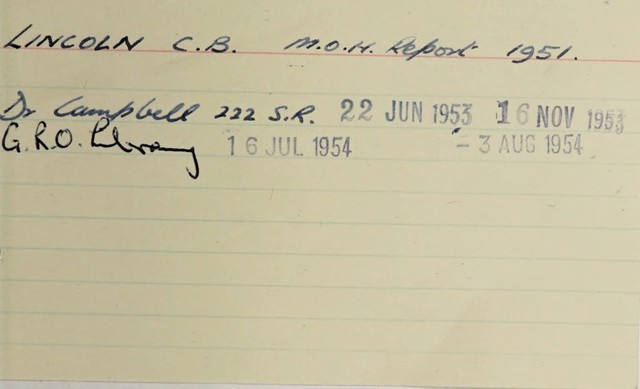 LINCOLN C.B. M.O.H. Report 1951.
Dr Campbell 222 S.R. 22 JUN 1953 16 NOV 1953
G.R.O. Library 16 JUL 1954 - 3 AUG 1954